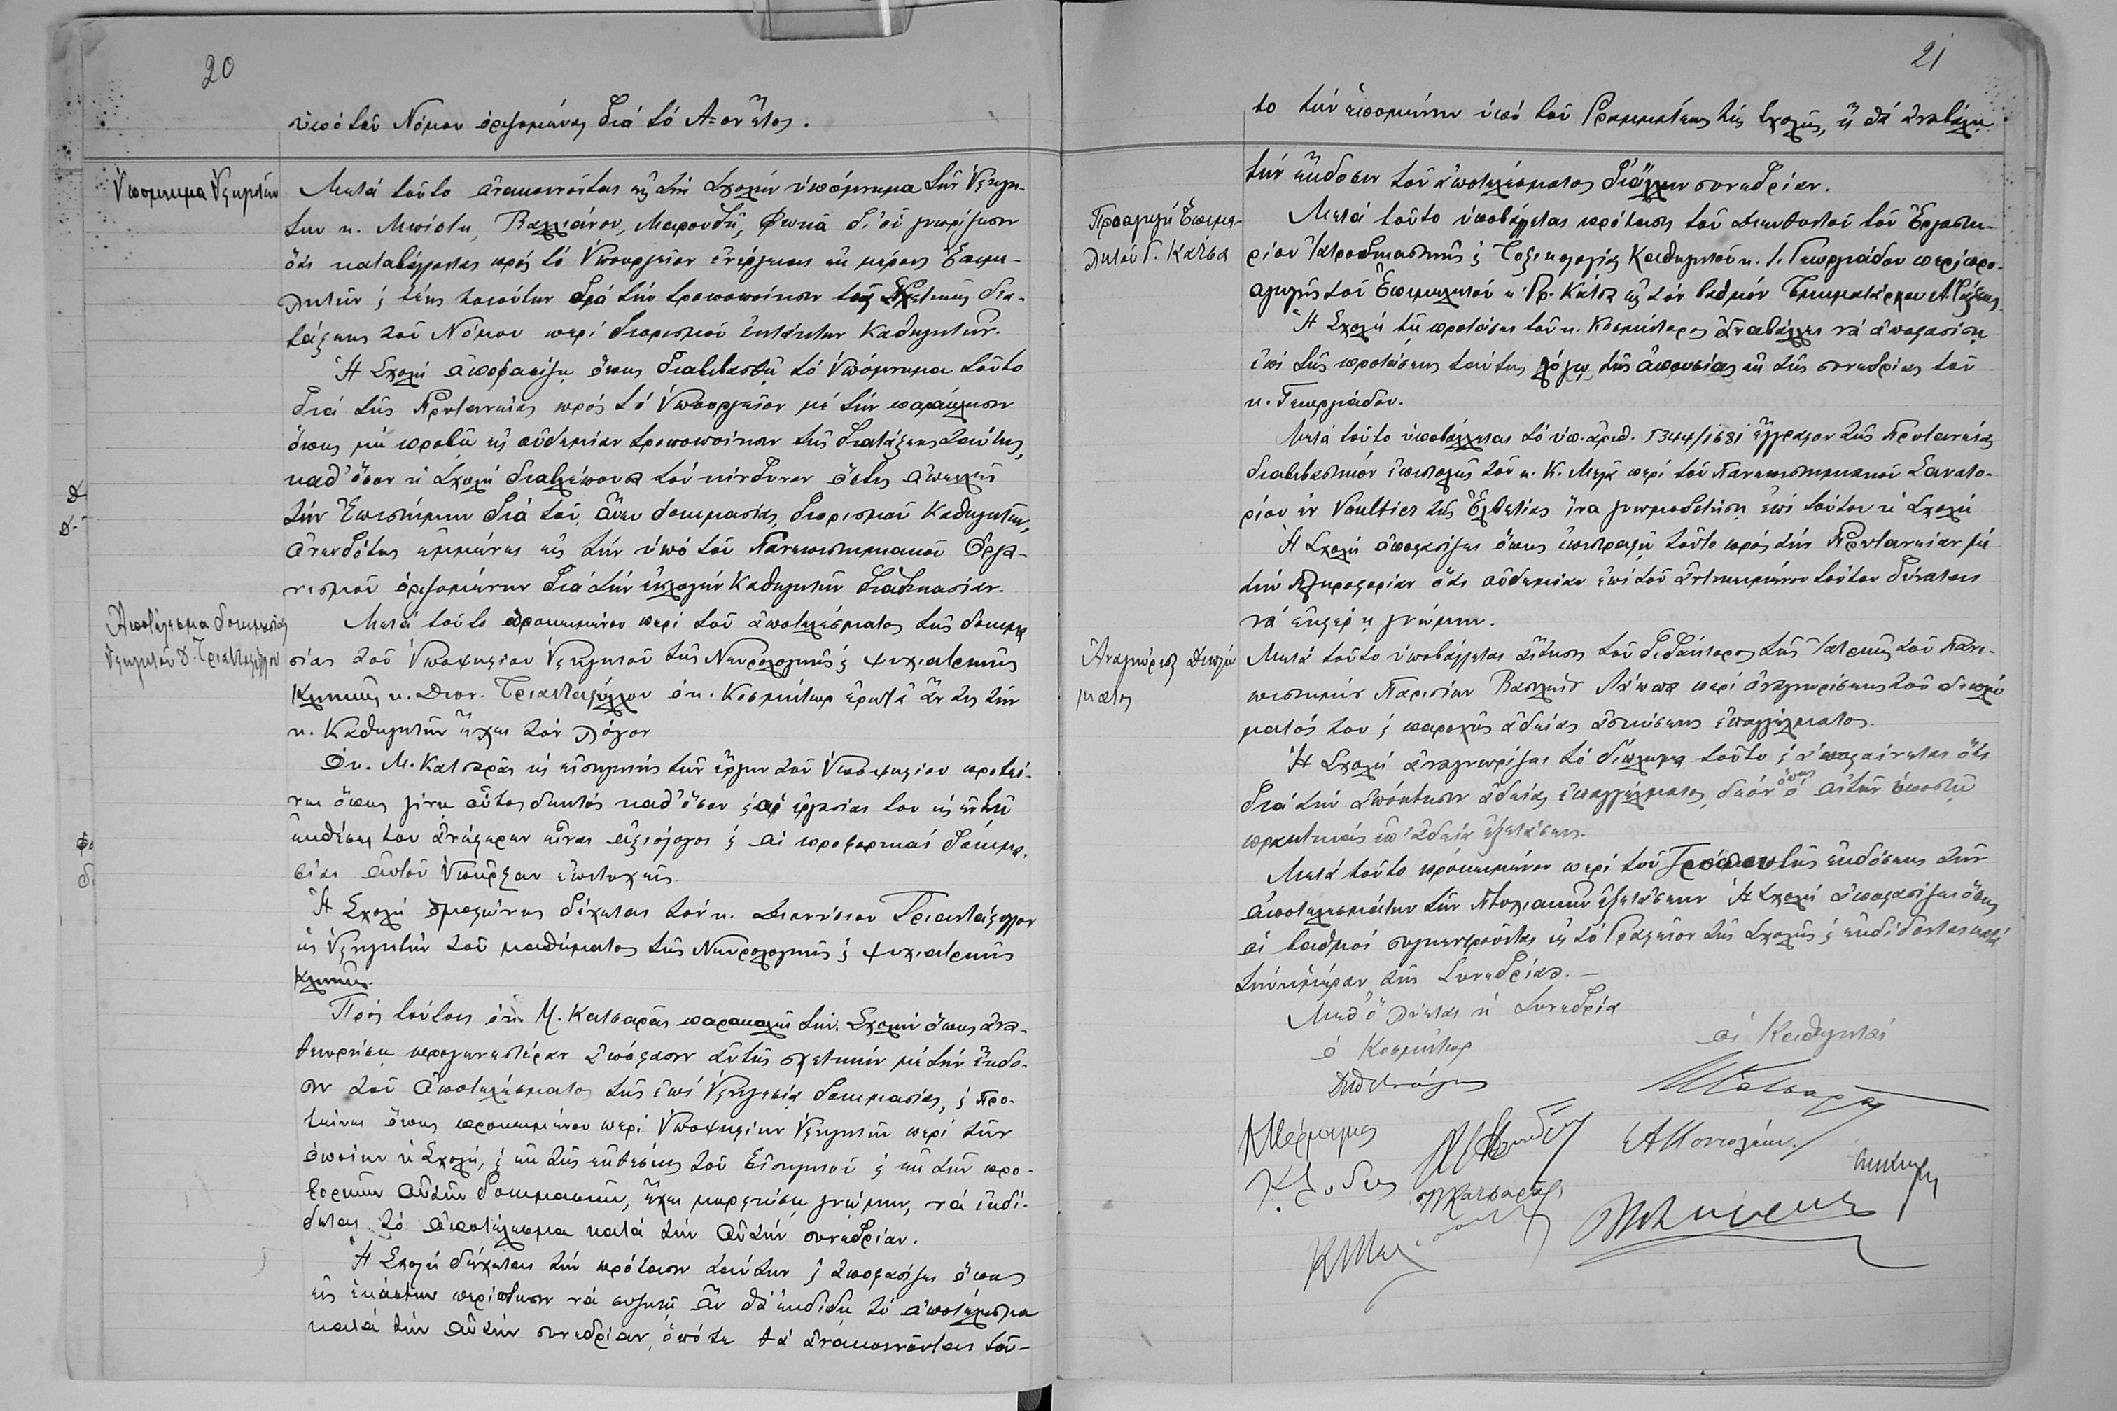 20
ὑπό τοῦ Νόμου ὁριζομένας διά τό Α=ον ἔτος.
Ὑπόμνημα Ὑφηγητῶν
Μετά τοῦτο ἀνακοινοῦται εἰς τήν Σχολήν ὑπόμνημα τῶν Ὑφηγη-
τῶν κ. Μπίστη, Βαλλιάνου, Μαρουδῆ, Φωκᾶ δι' οὗ γνωρίζουν
ὅτι καταβάλλονται πρός τό Ὑπουργεῖον ἐνέργειαι ἐκ μέρους Ἐπιμε-
λητῶν καί τέως τοιούτων διά τήν τροποποίησιν τῆς σχετικῆς δια-
τάξεως τοῦ Νόμου περί διορισμοῦ ἐκτάκτων Καθηγητῶν.
Ἡ Σχολή ἀποφασίζει ὅπως διαβιβασθῇ τό Ὑπόμνημα τοῦτο
διά τῆς Πρυτανείας πρός τό Ὑπουργεῖον μέ τήν παράκλησιν
ὅπως μή προβῇ εἰς οὐδεμίαν τροποποίησιν τῆς διατάξεως ταύτης,
καθ' ὅσον ἡ Σχολή διαβλέπουσα τόν κίνδυνον ὅστις ἀπειλεῖ
τήν Ἐπιστήμην διά τοῦ, ἄνευ δοκιμασίας, διορισμοῦ Καθηγητῶν,
ἀνενδότως ἐμμένει εἰς τήν ὑπό τοῦ Πανεπιστημιακοῦ Ὀργα-
νισμοῦ ὁριζομένην διά τήν ἐκλογήν Καθηγητῶν διαδικασίαν.
Ἀποτέλεσμα δοκιμασίας
Ὑφηγητοῦ Δ. Τριανταφύλλου
Μετά τοῦτο προκειμένου περί τοῦ ἀποτελέσματος τῆς δοκιμα
σίας τοῦ Ὑποψηφίου Ὑφηγητοῦ τῆς Νευρολογικῆς καί Ψυχιατρικῆς
Κλινικῆς κ. Διον. Τριανταφύλλου ὁ κ. Κοσμήτωρ ἐρωτᾷ ἄν τις τῶν
κ. Καθηγητῶν ἔχει τόν λόγον
Ὁ κ. Μ. Κατσαρᾶς ὡς εἰσηγητής τῶν ἔργων τοῦ Ὑποψηφίου προτεί-
νει ὅπως γίνῃ οὗτος δεκτός καθ' ὅσον καί αἱ ἐργασίαι του ὡς ἐν τῇ
ἐκθέσει του ἀνέφερεν εἶναι ἀξιόλογοι καί αἱ προφορικαί δοκιμα-
σίαι αὐτοῦ ὑπῆρξαν ἐπιτυχεῖς.
Ἡ Σχολή ὁμοφώνως δέχεται τόν κ. Διονύσιον Τριαντάφυλλον
ὡς Ὑφηγητήν τοῦ μαθήματος τῆς Νευρολογικῆς καί Ψυχιατρικῆς
Κλινικῆς.
Πρός τούτοις ὁ κ. Μ. Κατσαρᾶς παρακαλεῖ τήν Σχολήν ὅπως ἀνα-
θεωρήσῃ προγενεστέραν ἀπόφασιν αὐτῆς σχετικήν μέ τήν ἔκδο-
σιν τοῦ ἀποτελέσματος τῆς ἐπί Ὑφηγεσίᾳ δοκιμασίας, καί προ-
τείνει ὅπως προκειμένου περί Ὑποψηφίων Ὑφηγητῶν περί τῶν
ὁποίων ἡ Σχολή, καί ἐκ τῆς ἐκθέσεως τοῦ Εἰσηγητοῦ καί ἐκ τῶν προ-
φορικῶν αὐτῶν δοκιμασιῶν, ἔχει μορφώσει γνώμην, νά ἐκδί-
δεται τό ἀποτέλεσμα κατά τήν αὐτήν συνεδρίαν.
Ἡ Σχολή δέχεται τήν πρότασιν ταύτην καί ἀποφασίζει ὅπως
εἰς ἑκάστην περίπτωσιν νά συζητῇ ἄν θά ἐκδίδῃ τό ἀποτέλεσμα
κατά τήν αὐτήν συνεδρίαν, ὁπότε θά ἀνακοινοῦται τοῦ-
21
το τήν ἑπομένην ὑπό τοῦ Γραμματέως τῆς Σχολῆς, ἤ θά ἀναβάλῃ
τήν ἔκδοσιν τοῦ ἀποτελέσματος δι' ἄλλην συνεδρίαν.
Προαγωγή Ἐπιμε-
λητοῦ Γ. Κάτσα
Μετά τοῦτο ὑποβάλλεται πρότασις τοῦ Διευθυντοῦ τοῦ Ἐργαστη-
ρίου Ἰατροδικαστικῆς καί Τοξικολογίας Καθηγητοῦ κ. Ι. Γεωργιάδου περί προ-
αγωγῆς τοῦ Ἐπιμελητοῦ κ. Γρ. Κάτσα εἰς τόν βαθμόν Τμηματάρχου Α' τάξεως
Ἡ Σχολή τῇ προτάσει τοῦ κ. Κοσμήτορος ἀναβάλλει νά ἀποφασίσῃ
ἐπί τῆς προτάσεως ταύτης λόγῳ τῆς ἀπουσίας ἐκ τῆς συνεδρίας τοῦ
κ. Γεωργιάδου.
Μετά τοῦτο ὑποβάλλεται τό ὑπ. ἀριθ. 5344/1681 ἔγγραφον τῆς Πρυτανείας
διαβιβαστικόν ἐπιστολῆς τοῦ κ. Κ. Μελᾶ περί τοῦ Πανεπιστημιακοῦ Σανατο-
ρίου ἐν Vaultier τῆς Ἐλβετίας ἵνα γνωμοδοτήσῃ ἐπί τούτου ἡ Σχολή
Ἡ Σχολή ἀποφασίζει ὅπως ἐπιστραφῇ τοῦτο πρός τήν Πρυτανείαν μέ
τήν πληροφορίαν ὅτι οὐδεμίαν ἐπί τοῦ ἀντικειμένου τούτου δύναται
νά ἐκφέρῃ γνώμην.
Ἀναγνώρισις Διπλώ
ματος
Μετά τοῦτο ὑποβάλλεται αἴτησις τοῦ διδάκτορος τῆς Ἰατρικῆς τοῦ Πανε-
πιστημίου Παρισίων Βασιλείου Λάππα περί ἀναγνωρίσεως τοῦ διπλώ
ματός του καί παροχῆς ἀδείας ἀσκήσεως ἐπαγγέλματος.
Ἡ Σχολή ἀναγνωρίζει τό δίπλωμα τοῦτο καί ἀποφαίνεται ὅτι
διά τήν ἀπόκτησιν ἀδείας ἐπαγγέλματος, δέον ὅπως ὁ αἰτῶν ὑποστῇ
πρακτικάς ἐπ' ἀδείᾳ ἐξετάσεις.
Μετά τοῦτο προκειμένου περί τοῦ τρόπου τῆς ἐκδόσεως τῶν
ἀποτελεσμάτων τῶν Πτυχιακῶν ἐξετάσεων Ἡ Σχολή ἀποφασίζει ὅπως
οἱ βαθμοί συγκεντροῦνται εἰς τό Γραφεῖον τῆς Σχολῆς καί ἐκδίδονται κατά
τήν ἡμέραν τῆς Συνεδρίας. —
Μεθ' ὅ λύεται ἡ Συνεδρία
ὁ Κοσμήτωρ
οἱ Καθηγηταί
Μ Κατσαρᾶς